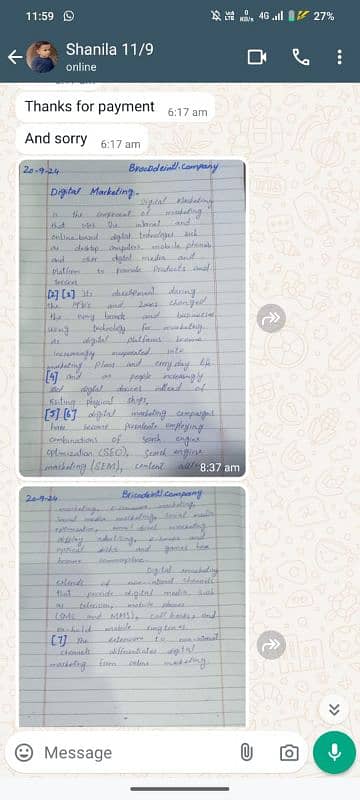 11:59
4G 27%
Shanila 11/9
online
Thanks for payment 6:17 am
And sorry 6:17 am
20-9-24
Digital Marketing.
Digital Marketing
is the component of marketing
that uses the internet and
online-based digital technologies such
as desktop computers, mobile phones
and other digital media and
platform to promote Products and
Services
[2] [3] Its development during
the 1990s and 2000s changed
the way brands and businesses
using technology for marketing.
as digital platforms became
increasingly incorporated into
marketing plans and every day life
[4] and as people increasingly
use digital devices instead of
visiting physical shops,
[5] [6] digital marketing campaigns
have become prevalent employing
combinations of search engine
optimization (SEO), Search engine
marketing (SEM), content
8:37 am
20-9-24
marketing, marketing,
Social media marketing, social media
optimization, marketing
display advertising, e-books and
optical disks and games have
become commonplace.
Digital marketing
extends to non-internet channels
that provide digital media, such
as television, mobile phones
(SMS and MMS), callbacks, and
on-hold mobile ringtones.
[7] The extension to non-internet
channels differentiates digital
marketing from online marketing
Message